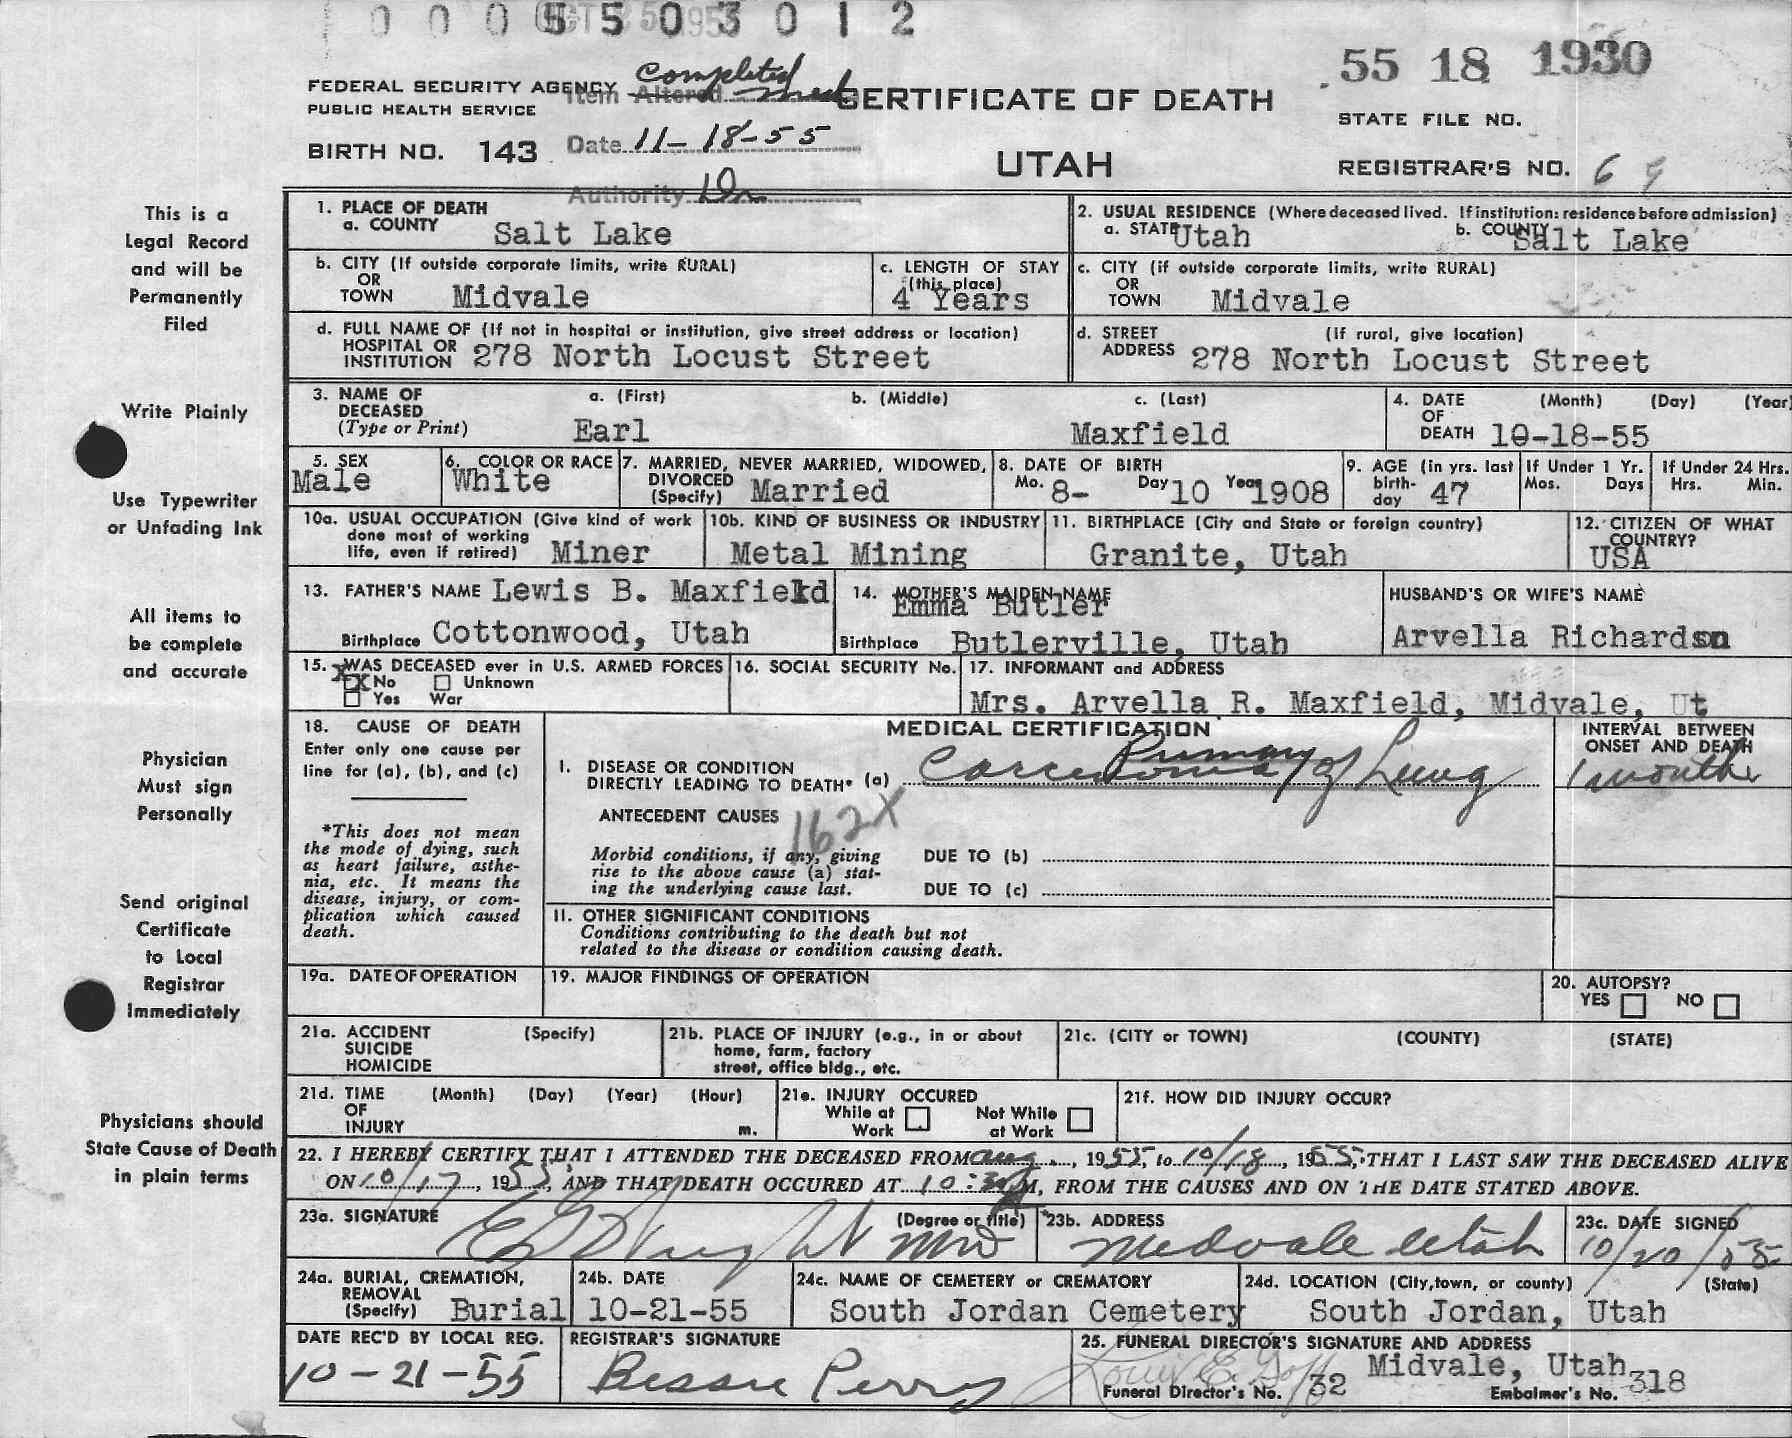 0 0 0 5 5 0 3 0 1 2
55 18 1930
FEDERAL SECURITY AGENCY
PUBLIC HEALTH SERVICE
Completed
Item Altered
CERTIFICATE OF DEATH
STATE FILE NO.
BIRTH NO. 143
Date 11-18-55
UTAH
REGISTRAR'S NO. 69
Authority
This is a
Legal Record
and will be
Permanently
Filed
Write Plainly
Use Typewriter
or Unfading Ink
All items to
be complete
and accurate
Physician
Must sign
Personally
Send original
Certificate
to Local
Registrar
Immediately
Physicians should
State Cause of Death
in plain terms
1. PLACE OF DEATH
a. COUNTY Salt Lake
2. USUAL RESIDENCE (Where deceased lived. If institution: residence before admission)
a. STATE Utah b. COUNTY Salt Lake
b. CITY (If outside corporate limits, write RURAL)
OR
TOWN Midvale
c. LENGTH OF STAY
(this place)
4 Years
c. CITY (if outside corporate limits, write RURAL)
OR
TOWN Midvale
d. FULL NAME OF (If not in hospital or institution, give street address or location)
HOSPITAL OR
INSTITUTION 278 North Locust Street
d. STREET (If rural, give location)
ADDRESS 278 North Locust Street
3. NAME OF DECEASED (Type or Print)
a. (First) b. (Middle) c. (Last)
Earl Maxfield
4. DATE (Month) (Day) (Year)
OF
DEATH 10-18-55
5. SEX
Male
6. COLOR OR RACE
White
7. MARRIED, NEVER MARRIED, WIDOWED,
DIVORCED
(Specify) Married
8. DATE OF BIRTH
Mo. 8- Day 10 Year 1908
9. AGE (in yrs. last
birth-
day 47
If Under 1 Yr.
Mos. Days
If Under 24 Hrs.
Hrs. Min.
10a. USUAL OCCUPATION (Give kind of work
done most of working
life, even if retired) Miner
10b. KIND OF BUSINESS OR INDUSTRY
Metal Mining
11. BIRTHPLACE (City and State or foreign country)
Granite, Utah
12. CITIZEN OF WHAT
COUNTRY?
USA
13. FATHER'S NAME Lewis B. Maxfield
Birthplace Cottonwood, Utah
14. MOTHER'S MAIDEN NAME
Emma Butler
Birthplace Butlerville, Utah
HUSBAND'S OR WIFE'S NAME
Arvella Richardson
15. WAS DECEASED ever in U.S. ARMED FORCES
XX No Unknown
Yes War
16. SOCIAL SECURITY No.
17. INFORMANT and ADDRESS
Mrs. Arvella R. Maxfield, Midvale, Ut
18. CAUSE OF DEATH
Enter only one cause per
line for (a), (b), and (c)
*This does not mean
the mode of dying, such
as heart failure, asthe-
nia, etc. It means the
disease, injury, or com-
plication which caused
death.
MEDICAL CERTIFICATION
INTERVAL BETWEEN
ONSET AND DEATH
Primary
I. DISEASE OR CONDITION
DIRECTLY LEADING TO DEATH* (a) Carcinoma of Lung
1 month
ANTECEDENT CAUSES 162X
Morbid conditions, if any, giving
rise to the above cause (a) stat-
ing the underlying cause last.
DUE TO (b)
DUE TO (c)
II. OTHER SIGNIFICANT CONDITIONS
Conditions contributing to the death but not
related to the disease or condition causing death.
19a. DATE OF OPERATION
19. MAJOR FINDINGS OF OPERATION
20. AUTOPSY?
YES NO
21a. ACCIDENT (Specify)
SUICIDE
HOMICIDE
21b. PLACE OF INJURY (e.g., in or about
home, farm, factory
street, office bldg., etc.
21c. (CITY or TOWN) (COUNTY) (STATE)
21d. TIME (Month) (Day) (Year) (Hour)
OF
INJURY m.
21e. INJURY OCCURED
While at Work Not While at Work
21f. HOW DID INJURY OCCUR?
22. I HEREBY CERTIFY THAT I ATTENDED THE DECEASED FROM Aug, 1955, to 10/18, 1955, THAT I LAST SAW THE DECEASED ALIVE
ON 10/17, 1955, AND THAT DEATH OCCURED AT 10:30 M, FROM THE CAUSES AND ON THE DATE STATED ABOVE.
23a. SIGNATURE (Degree or title)
MD
23b. ADDRESS
Midvale Utah
23c. DATE SIGNED
10/20/55
24a. BURIAL, CREMATION,
REMOVAL
(Specify) Burial
24b. DATE
10-21-55
24c. NAME OF CEMETERY or CREMATORY
South Jordan Cemetery
24d. LOCATION (City, town, or county) (State)
South Jordan, Utah
DATE REC'D BY LOCAL REG.
10-21-55
REGISTRAR'S SIGNATURE
Bessie Perry
25. FUNERAL DIRECTOR'S SIGNATURE AND ADDRESS
Louis E. Goff Midvale, Utah
Funeral Director's No. 132 Embalmer's No. 318